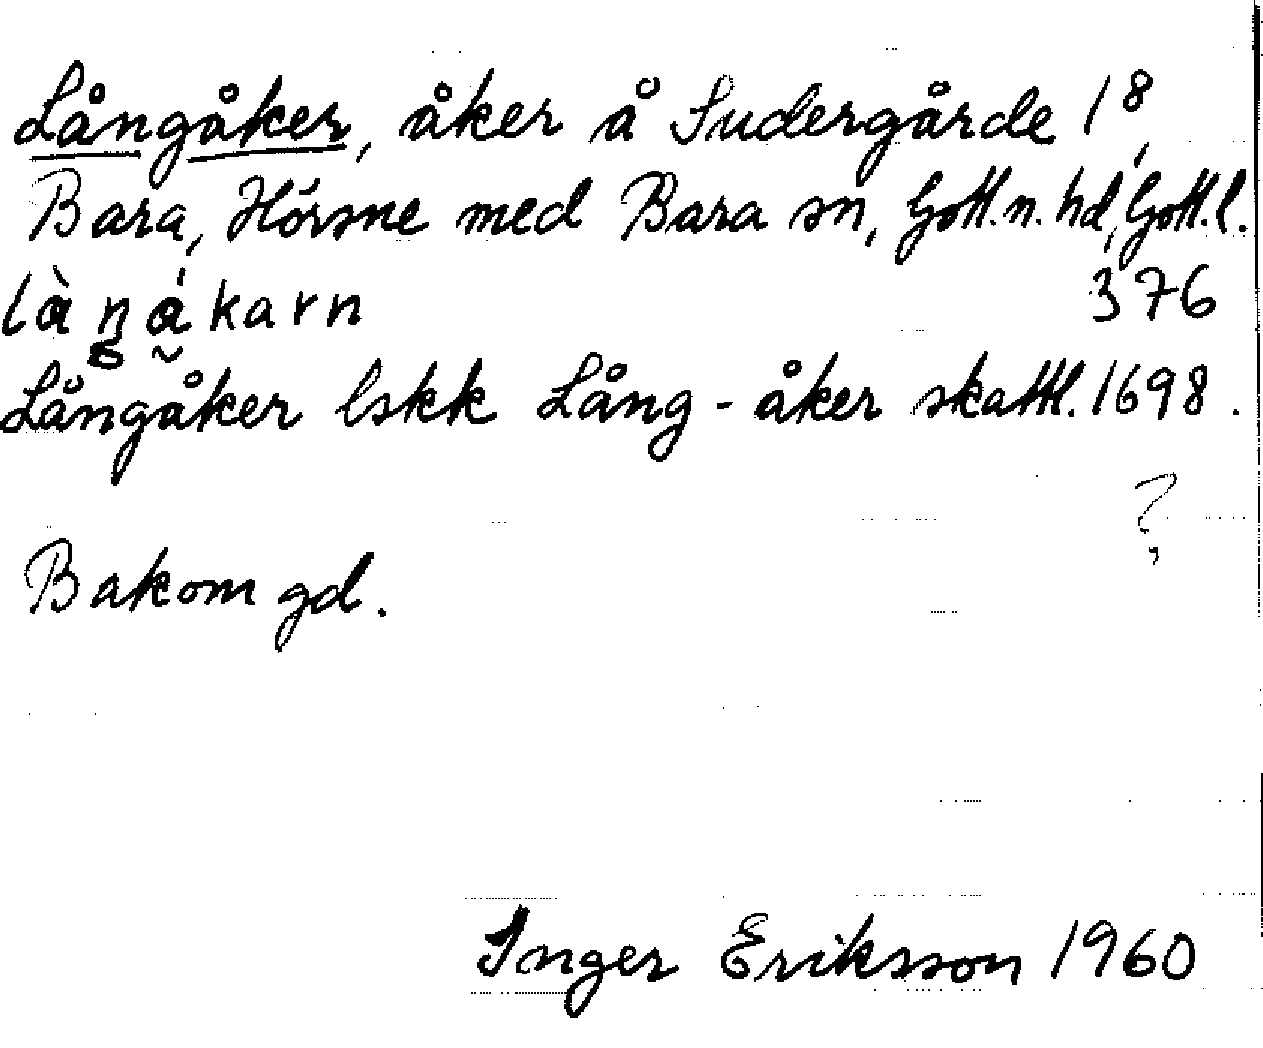 Långåker, åker å Sudergårde 1⁸,
Bara, Hörsne med Bara sn, Gotl. n. hd, Gotl. l.
làŋákarn 376
Långåker lskk Lång-åker skattl. 1698.
?
Bakom gd.
Inger Eriksson 1960